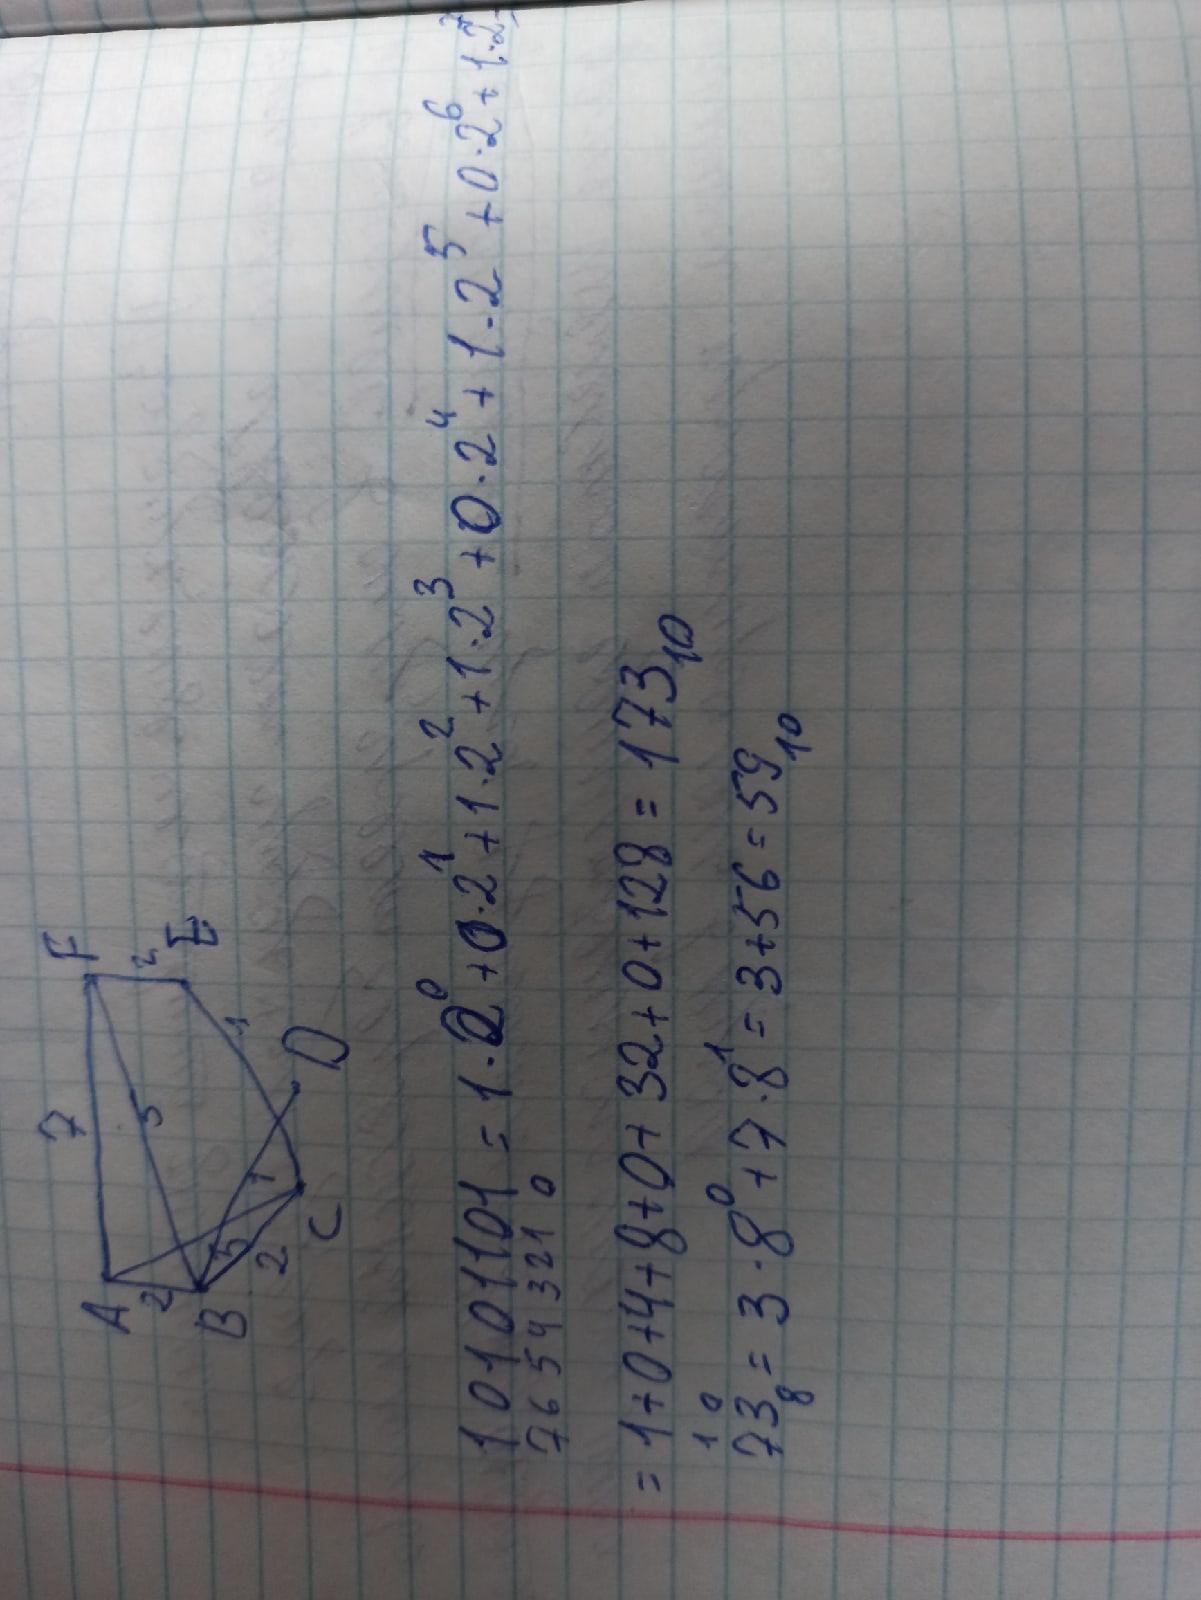 A 7 F
2 5 2
B 5 1 1 E
2
C D
10101101 = 1·2⁰+0·2¹+1·2²+1·2³+0·2⁴+1·2⁵+0·2⁶+1·2⁷
7 6 5 4 3 2 1 0
= 1+0+4+8+0+32+0+128 = 173₁₀
1 0
73₈ = 3·8⁰+7·8¹ = 3+56 = 59₁₀